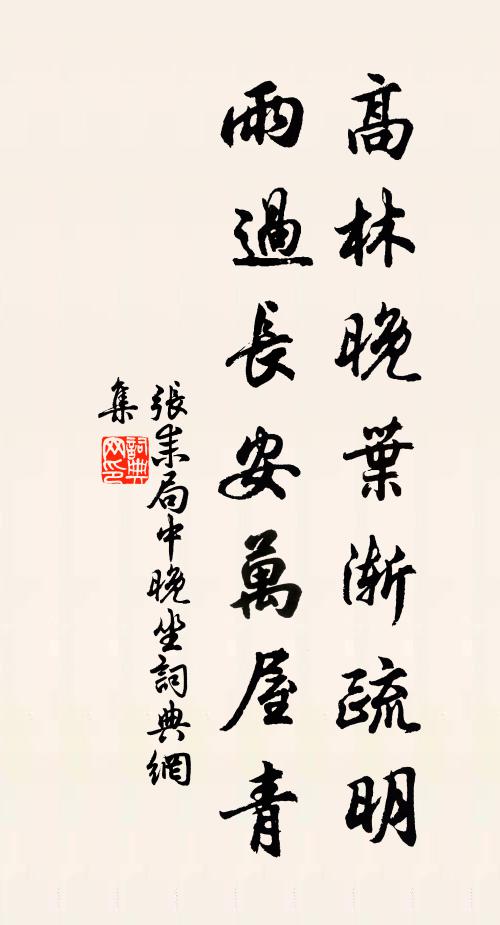 高林晚葉漸疏明
雨過長安萬屋青
張耒局中晚坐詞典網
集
詞典
网印